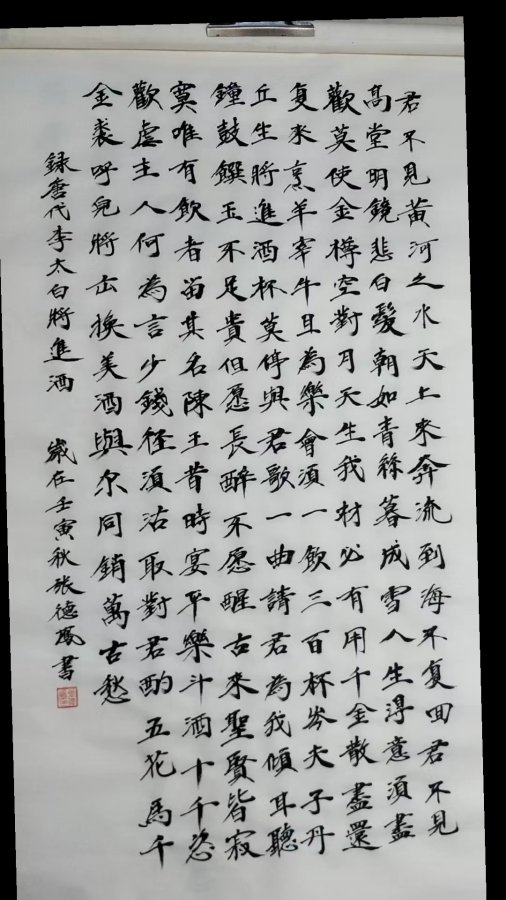 君不見黄河之水天上來奔流到海不复回君不見
高堂明鏡悲白髮朝如青絲暮成雪人生淂意須盡
歡莫使金樽空對月天生我材必有用千金散盡還
复來烹羊宰牛且為樂會須一飲三百杯岑夫子丹
丘生將進酒杯莫停與君歌一曲請君為我傾耳聽
鐘鼓饌玉不足貴但愿長醉不愿醒古來聖賢皆寂
寞唯有飲者留其名陳王昔時宴平樂斗酒十千恣
歡虐主人何為言少錢徑須沽取對君酌五花馬千
金裘呼兒將出換美酒與尔同銷萬古愁
録唐代李太白將進酒 歲在壬寅秋张德書